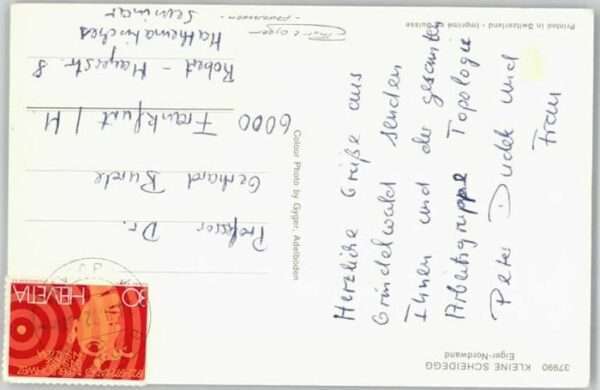 Herzliche Grüße aus
Grindelwald senden
Ihnen und der gesamten
Arbeitsgruppe Topologie
Peter Dudek und
Frau
Professor Dr.
Gerhard Burde
6000 Frankfurt / M
Robert - Mayerstr. 8
Mathematisches
Seminar
37990 KLEINE SCHEIDEGG
Eiger-Nordwand
Colour Photo by Gyger, Adelboden
Printed in Switzerland - Imprimé en Suisse
HELVETIA
30